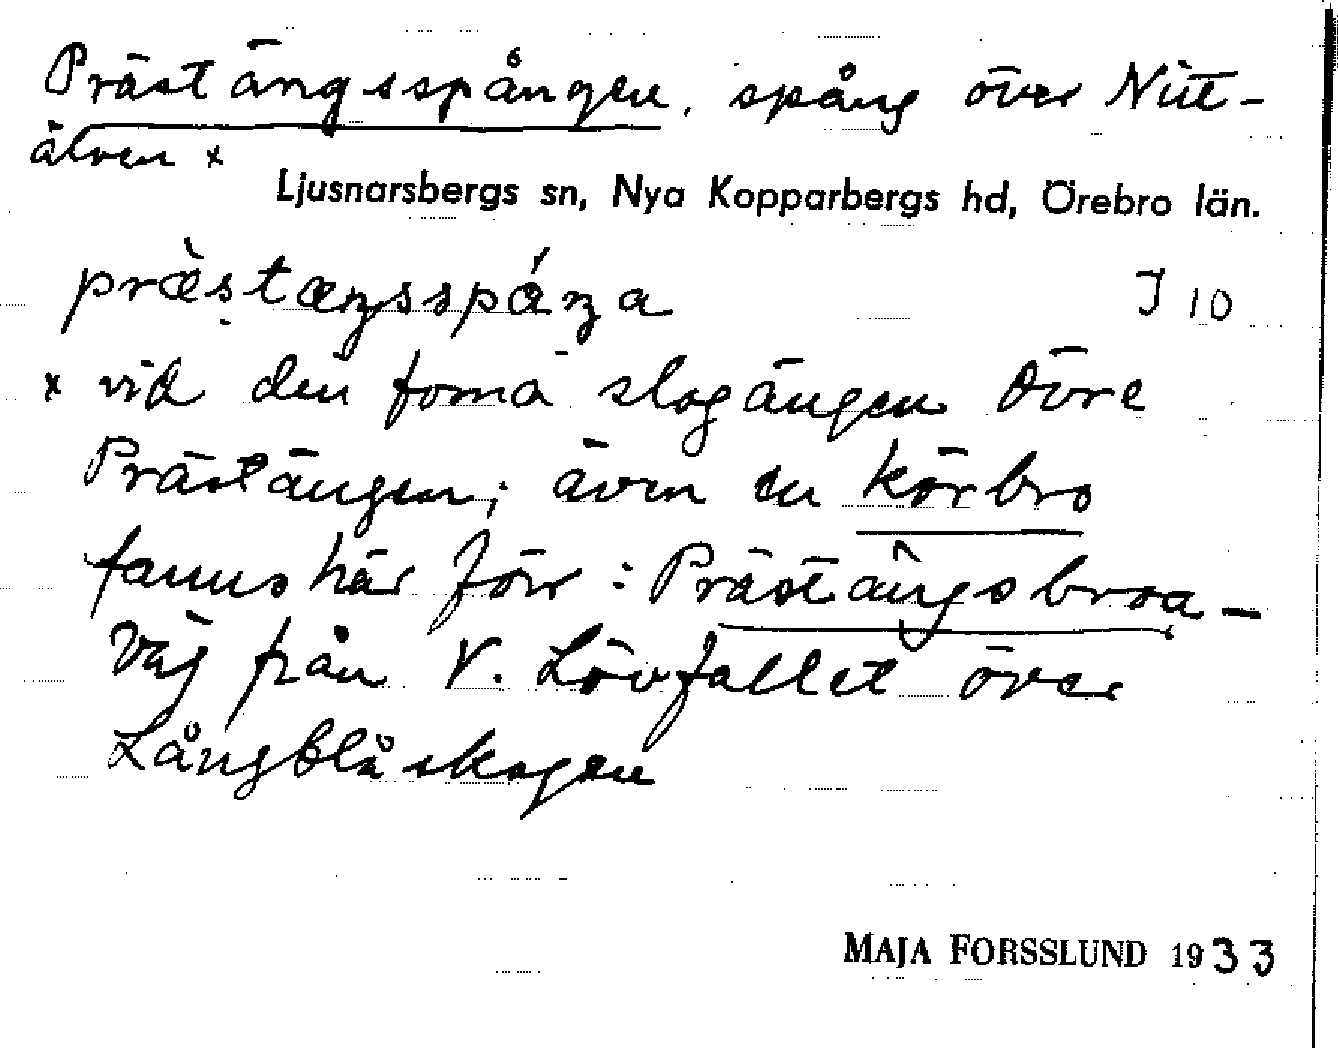 Prästängsspången, spång över Nitt-
älven x
Ljusnarsbergs sn, Nya Kopparbergs hd, Örebro län.
præ̀stæŋsspáŋa I 10
x vid den forna slogängen Övre
Prästängen; även en körbro
fanns här förr: Prästängsbroa –
Väg från V. Lövfallet över
Långblåskogen
MAJA FORSSLUND 1933